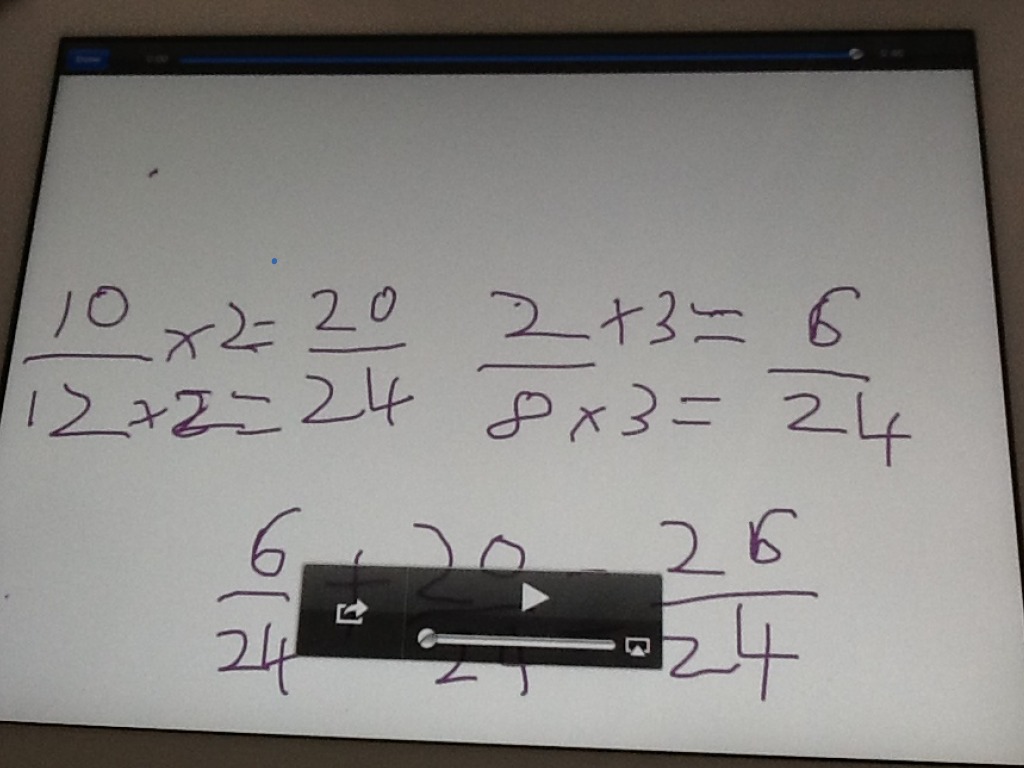 Done
10/12 ×2= 20/24
×2=
2/8 +3= 6/24
×3=
6/24 + 20/24 - 26/24